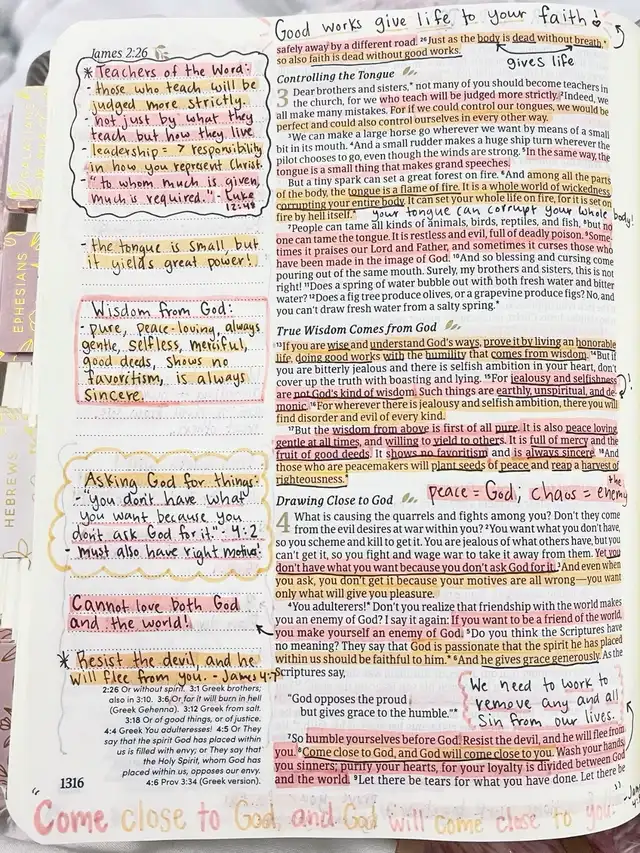 Good works give life to your faith!
James 2:26
* Teachers of the Word:
- those who teach will be
judged more strictly.
- not just by what they
teach but how they live.
- leadership = > responsibility
in how you represent Christ.
- "to whom much is given,
much is required." - Luke
12:48
- the tongue is small, but
it yields great power!
Wisdom from God:
- pure, peace-loving, always
gentle, selfless, merciful,
good deeds, shows no
favoritism, is always
sincere.
Asking God for things:
- "you don't have what
you want because you
don't ask God for it." 4:2
- must also have right motive!
Cannot love both God
and the world!
* Resist the devil, and he
will flee from you. - James 4:7
2:26 Or without spirit. 3:1 Greek brothers;
also in 3:10. 3:6 Or for it will burn in hell
(Greek Gehenna). 3:12 Greek from salt.
3:18 Or of good things, or of justice.
4:4 Greek You adulteresses! 4:5 Or They
say that the spirit God has placed
within us is filled with envy; or They say that
the Holy Spirit, whom God has
placed within us, opposes our envy.
4:6 Prov 3:34 (Greek version).
1316
EPHESIANS
HEBREWS
safely away by a different road. 26Just as the body is dead without breath,*
so also faith is dead without good works.
gives life
Controlling the Tongue
3 Dear brothers and sisters,* not many of you should become teachers
in the church, for we who teach will be judged more strictly. 2Indeed, we
all make many mistakes. For if we could control our tongues, we would be
perfect and could also control ourselves in every other way.
3We can make a large horse go wherever we want by means of a small
bit in its mouth. 4And a small rudder makes a huge ship turn wherever the
pilot chooses to go, even though the winds are strong. 5In the same way, the
tongue is a small thing that makes grand speeches.
But a tiny spark can set a great forest on fire. 6And among all the parts
of the body, the tongue is a flame of fire. It is a whole world of wickedness,
corrupting your entire body. It can set your whole life on fire, for it is set on
fire by hell itself.*
your tongue can corrupt your whole body!
7People can tame all kinds of animals, birds, reptiles, and fish, 8but no
one can tame the tongue. It is restless and evil, full of deadly poison. 9Some-
times it praises our Lord and Father, and sometimes it curses those who
have been made in the image of God. 10And so blessing and cursing come
pouring out of the same mouth. Surely, my brothers and sisters, this is not
right! 11Does a spring of water bubble out with both fresh water and bitter
water? 12Does a fig tree produce olives, or a grapevine produce figs? No, and
you can't draw fresh water from a salty spring.*
True Wisdom Comes from God
13If you are wise and understand God's ways, prove it by living an honorable
life, doing good works with the humility that comes from wisdom. 14But if
you are bitterly jealous and there is selfish ambition in your heart, don't
cover up the truth with boasting and lying. 15For jealousy and selfishness
are not God's kind of wisdom. Such things are earthly, unspiritual, and de-
monic. 16For wherever there is jealousy and selfish ambition, there you will
find disorder and evil of every kind.
17But the wisdom from above is first of all pure. It is also peace loving,
gentle at all times, and willing to yield to others. It is full of mercy and the
fruit of good deeds. It shows no favoritism and is always sincere. 18And
those who are peacemakers will plant seeds of peace and reap a harvest of
righteousness.*
peace = God; chaos = the enemy
Drawing Close to God
4 What is causing the quarrels and fights among you? Don't they come
from the evil desires at war within you? 2You want what you don't have,
so you scheme and kill to get it. You are jealous of what others have, but you
can't get it, so you fight and wage war to take it away from them. Yet you
don't have what you want because you don't ask God for it. 3And even when
you ask, you don't get it because your motives are all wrong—you want
only what will give you pleasure.
4You adulterers!* Don't you realize that friendship with the world makes
you an enemy of God? I say it again: If you want to be a friend of the world,
you make yourself an enemy of God. 5Do you think the Scriptures have
no meaning? They say that God is passionate that the spirit he has placed
within us should be faithful to him.* 6And he gives grace generously. As the
Scriptures say,
"God opposes the proud
but gives grace to the humble."*
We need to work to
remove any and all
sin from our lives.
7So humble yourselves before God. Resist the devil, and he will flee from
you. 8Come close to God, and God will come close to you. Wash your hands,
you sinners; purify your hearts, for your loyalty is divided between God
and the world. 9Let there be tears for what you have done. Let there be
"Come close to God, and God will come close to you."